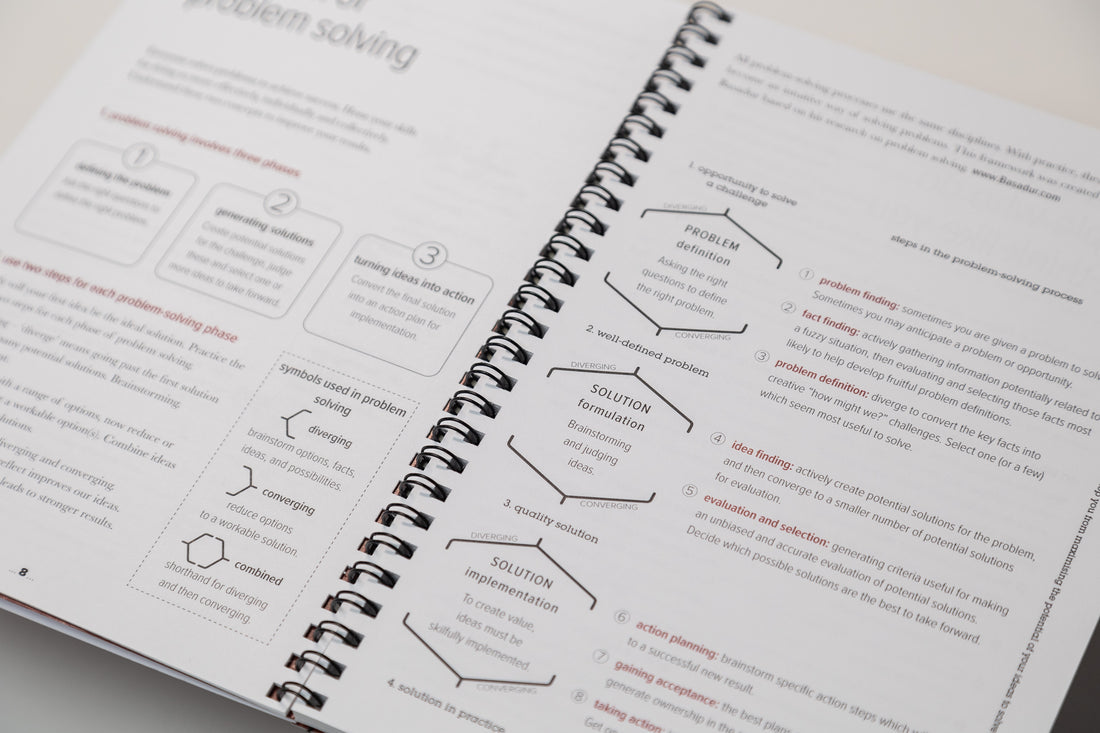 problem solving
1. problem solving involves three phases
1
defining the problem
2
generating solutions
Create potential solutions
for the challenge, judge
these and select one or
more ideas to take forward.
3
turning ideas into action
Convert the final solution
into an action plan for
implementation.
use two steps for each problem-solving phase
will your first idea be the ideal solution. Practice the
steps for each phase of problem solving.
'diverge' means going past the first solution
many potential solutions. Brainstorming,
with a range of options, now reduce or
a workable option(s). Combine ideas
diverging and converging,
reflect improves our ideas.
leads to stronger results.
symbols used in problem
solving
diverging
brainstorm options, facts,
ideas, and possibilities.
converging
reduce options
to a workable solution.
combined
shorthand for diverging
and then converging.
..8..
All problem solving processes use the same disciplines. With practice,
become an intuitive way of solving problems. This framework was created
Basadur based on his research on problem solving. www.Basadur.com
1. opportunity to solve
a challenge
DIVERGING
PROBLEM
definition
Asking the right
questions to define
the right problem.
CONVERGING
2. well-defined problem
DIVERGING
SOLUTION
formulation
Brainstorming
and judging
ideas.
CONVERGING
3. quality solution
DIVERGING
SOLUTION
implementation
To create value,
ideas must be
skilfully implemented.
CONVERGING
4. solution in practice
steps in the problem-solving process
1 problem finding: sometimes you are given a problem to
Sometimes you may anticipate a problem or opportunity.
2 fact finding: actively gathering information potentially related to
a fuzzy situation, then evaluating and selecting those facts most
likely to help develop fruitful problem definitions.
3 problem definition: diverge to convert the key facts into
creative "how might we?" challenges. Select one (or a few)
which seem most useful to solve.
4 idea finding: actively create potential solutions for the problem,
and then converge to a smaller number of potential solutions
for evaluation.
5 evaluation and selection: generating criteria useful for making
an unbiased and accurate evaluation of potential solutions.
Decide which possible solutions are the best to take forward.
6 action planning: brainstorm specific action steps which
to a successful new result.
7 gaining acceptance: the best plans
generate ownership in the
8 taking action:
Get
you from maximising the potential of your ideas to solve